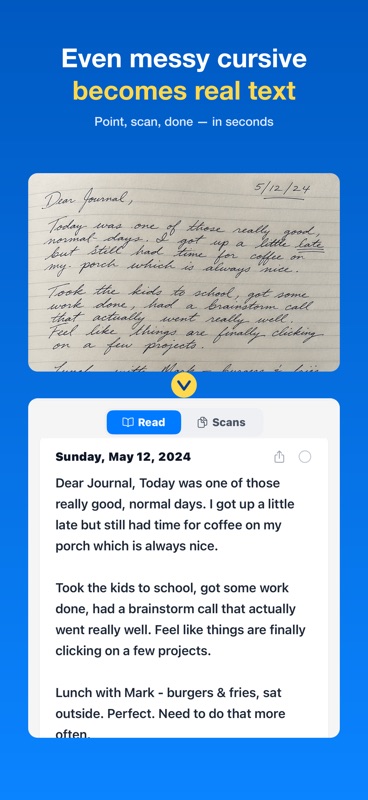 Even messy cursive
becomes real text
Point, scan, done — in seconds
5/12/24
Dear Journal,
Today was one of those really good,
normal days. I got up a little late
but still had time for coffee on
my porch which is always nice.
Took the kids to school, got some
work done, had a brainstorm call
that actually went really well.
Feel like things are finally clicking
on a few projects.
Lunch with Mark - burgers & fries
Read
Scans
Sunday, May 12, 2024
Dear Journal, Today was one of those
really good, normal days. I got up a little
late but still had time for coffee on my
porch which is always nice.
Took the kids to school, got some work
done, had a brainstorm call that actually
went really well. Feel like things are finally
clicking on a few projects.
Lunch with Mark - burgers & fries, sat
outside. Perfect. Need to do that more
often.